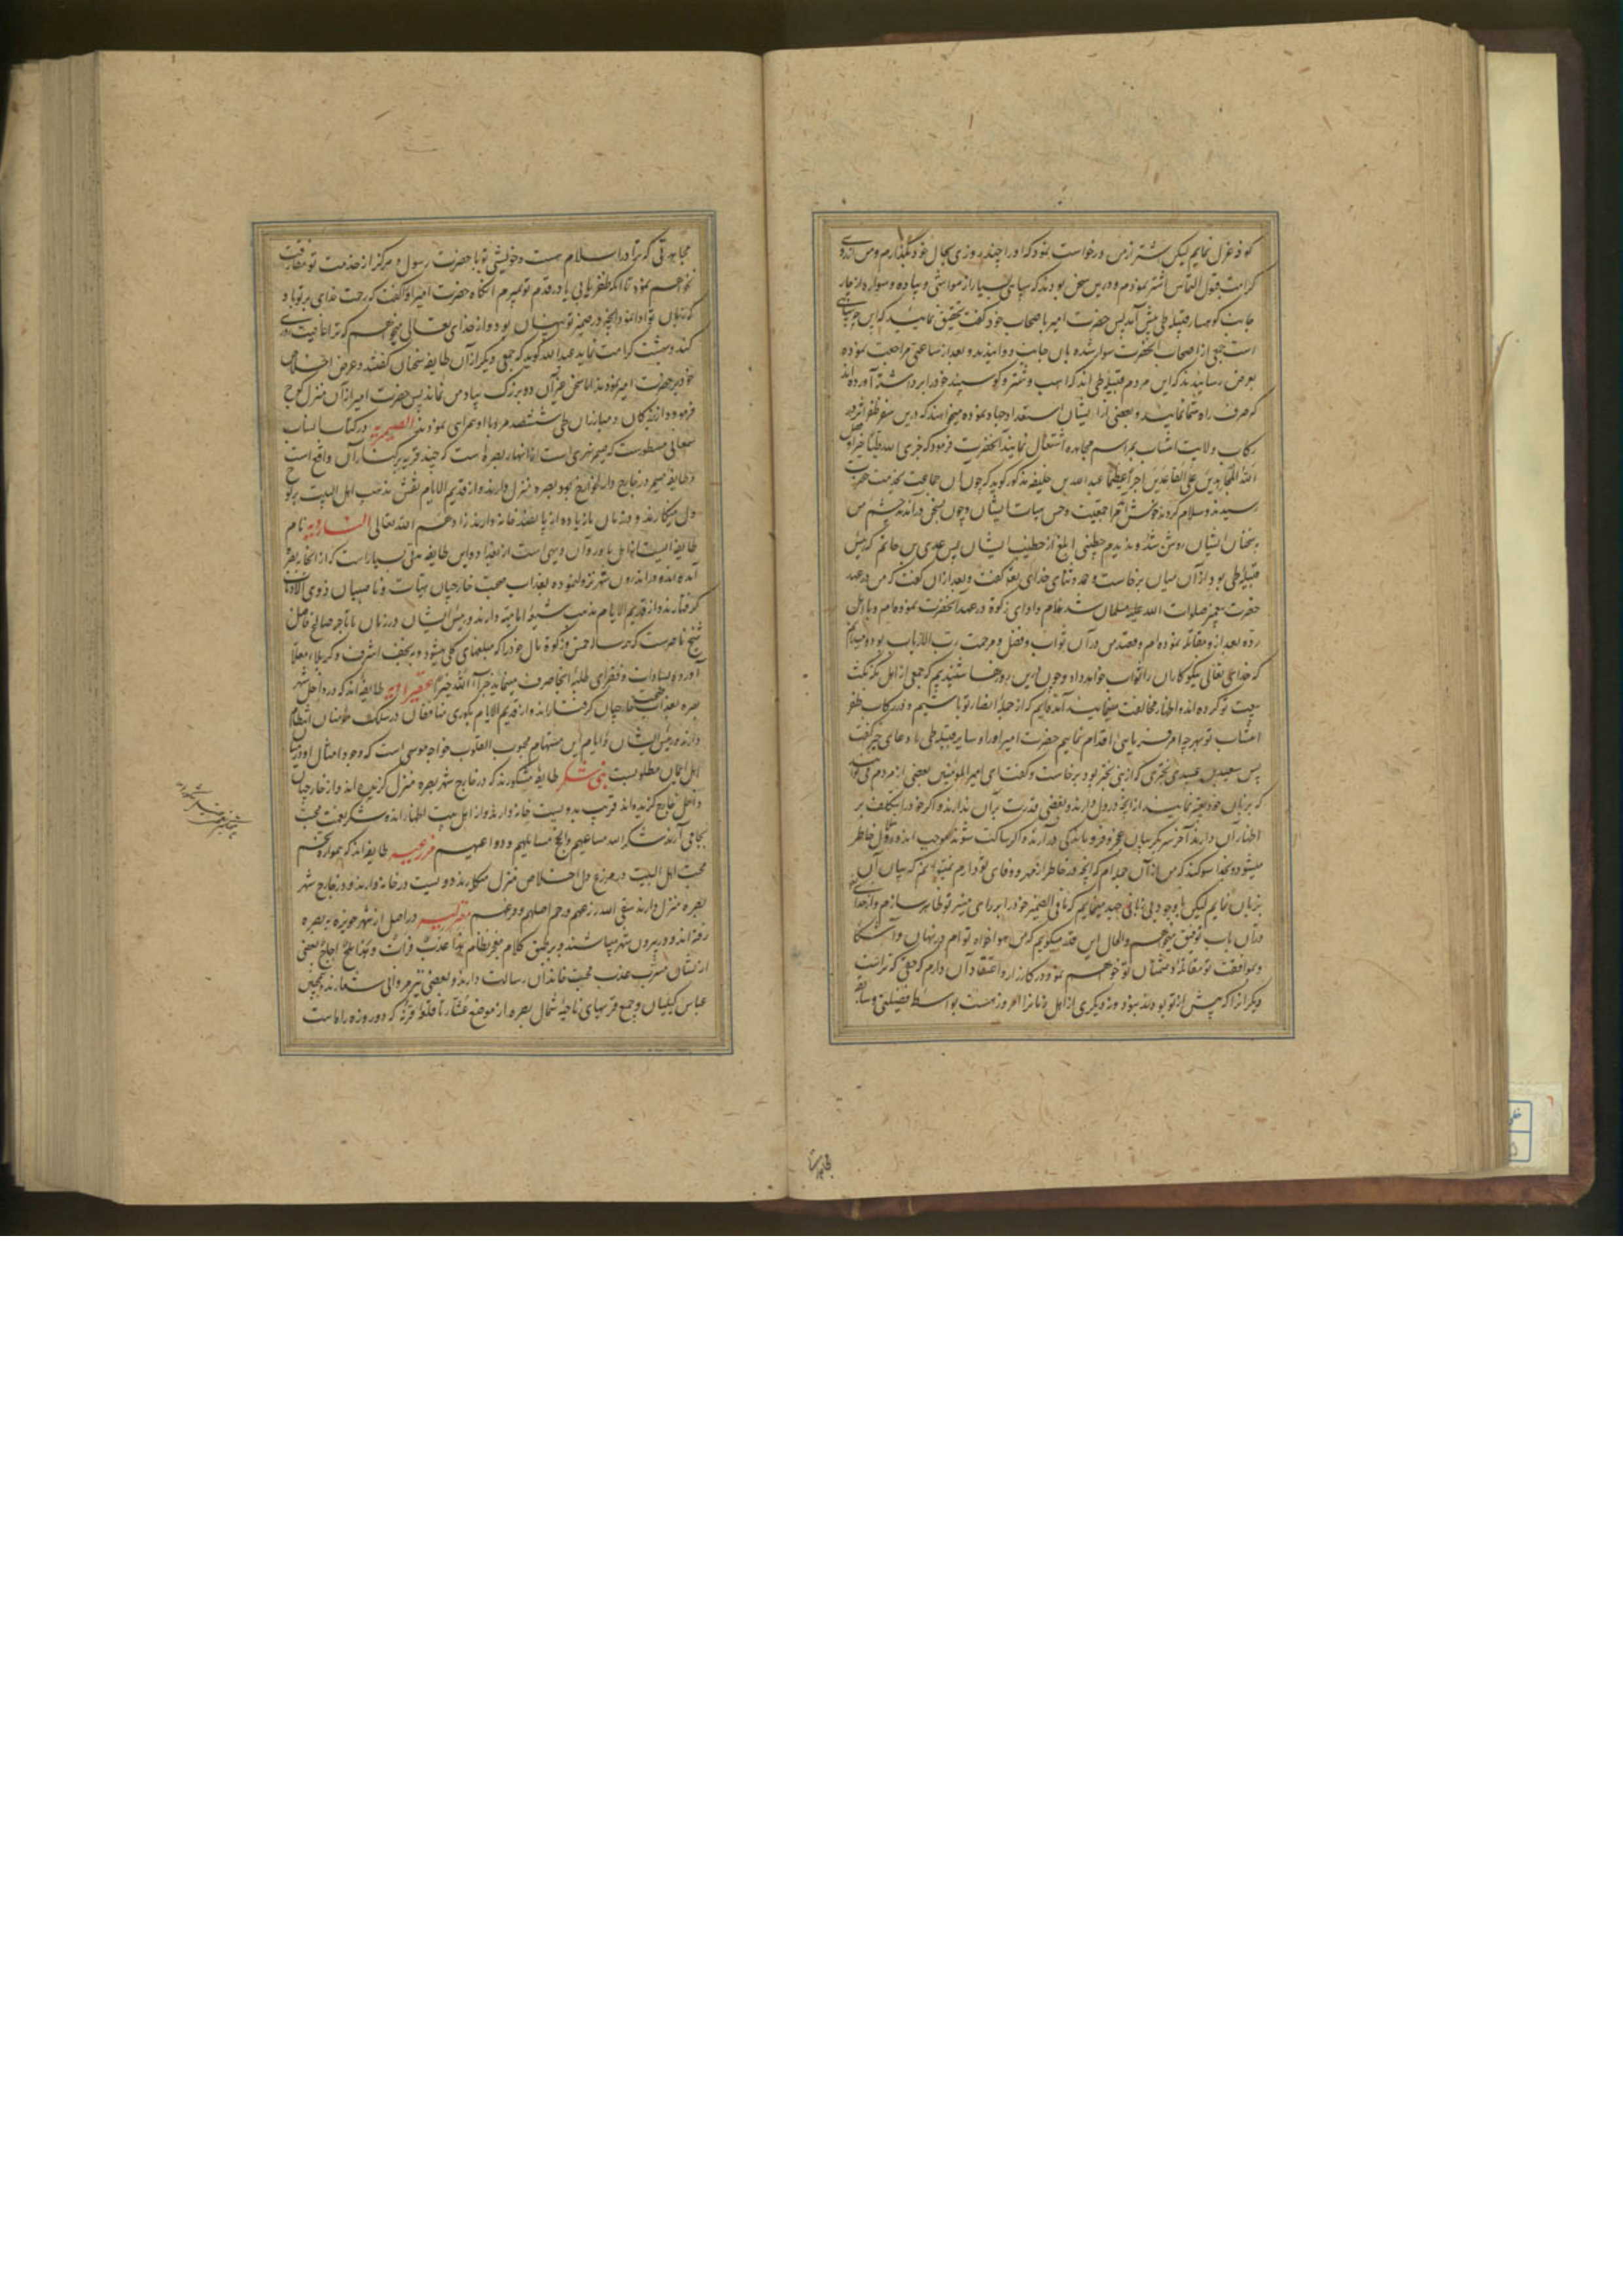 کوفه عزل نمایم لیکن اشتر از من درخواست نمود که او را چند روزی بحال خود بگذارم و من از روی
کرامت قبول التماس اشتر نمودم و درین سخن بودند که سیاهی بسیار از مواشی و پیاده و سواره از جبار
جانب کوهسار قبیله طی پیش آمد پس حضرت امیر باصحاب خود گفت تحقیق نمایید که این چه سیاهی
است جمعی از اصحاب آنحضرت سوار شده بآن جانب دوانیدند و بعد از ساعتی مراجعت نموده
بعرض رسانیدند که این مردم قبیله طی اند که اسب و شتر و گوسپند خود را برداشته آورده اند
که صرف راه شما نمایند و بعضی از ایشان استعداد جهاد نموده میخواهند که درین سفر ظفر اثر در
رکاب ولایت انتساب بمراسم مجاهده اشتغال نمایند آنحضرت فرمود که جزی الله طیا خیرا و فضل
الله المجاهدین علی القاعدین اجرا عظیما عبدالله بن خلیفه مذکور گوید که چون آن جماعت بخدمت حضرت
رسیدند و سلام کردند خوش آمد مرا جمعیت و حسن هیات ایشان و چون بسخن درآمدند چشم من
بسخنان ایشان روشن شد و ندیدم خطیبی ابلغ از خطیب ایشان پس عدی بن حاتم که رئیس
قبیله طی بود از آن میان برخاست و حمد و ثنای خدای بعد گفت و بعد از آن گفت که من در عهد
حضرت پیغمبر صلوات الله علیه مسلمان شده ام و ادای زکوة در عهد آنحضرت نموده ام و با اهل
رده بعد از او مقاتله نموده ام و قصد من در آن ثواب و فضل و مرحمت رب الارباب بود و میدانم
که خدای تعالی نیکوکاران را ثواب خواهد داد و چون درین روزها شنیدیم که جمعی از اهل مکه نکث
بیعت تو کرده اند و اظهار مخالفت مینمایند آمده ایم که از جمله انصار تو باشیم و در رکاب ظفر
انتساب تو بهر چه امر فرمایی اقدام نماییم حضرت امیر او را و سایر قبیله طی را دعای خیر گفت
پس سعید بن عبید بحتری که از بنی بحتر بود برخاست و گفت ای امیرالمؤمنین بعضی از مردم می توانند
که بر زبان خود تعبیر نمایند از آنچه در دل دارند و بعضی قدرت بر آن ندارند و اگر خود را بتکلف بر
اظهار آن دارند آخر سر بگریبان عجز و فروماندگی درآرند و اگر ساکت شوند موجب اندوه و ملال خاطر
میشود و بخدا سوگند که من از آن جمله ام که آنچه در خاطر از مهر و وفای تو دارم نمیتوانم که بیان آن
بزبان نمایم لیکن با وجود بی زبانی جهد مینمایم که ما فی الضمیر خود را بر رای منیر تو ظاهر سازم و از خدای
در آن باب توفیق میخواهم و الحال این قدر میگویم که من هواخواه توام در نهان و آشکارا
و بموافقت تو مقاتله دشمنان تو خواهم نمود در کارزار و اعتقاد آن دارم که حقی که تراست
دیگران را که پیش از تو بودند نبود و نه دیگری از اهل زمان را امروز هست بواسطه فضیلتی و سابقه
مجاهدتی که ترا در اسلام هست و خویشی تو با حضرت رسول و هرگز از خدمت تو مفارقت
نخواهم نمود تا آنکه ظفر یابی یا در قدم تو بمیرم آنگاه حضرت امیر او را گفت که رحمت خدای بر تو باد
که زبان تو ادا نمود آنچه در ضمیر تو پنهان بود و از خدای تعالی میخواهم که ترا عافیت روزی
کند و بهشت کرامت نماید عبدالله گوید که جمعی دیگر از آن طایفه سخنان گفتند و عرض اخلاص
خود بر حضرت امیر نمودند اما سخن غیر آن دو بزرگ بیاد من نماند پس حضرت امیر از آن منزل کوچ
فرمود و از بزرگان و مبارزان طی ششصد مرد با او همراهی نمودند الصیمریه در کتاب انساب
سمعانی مسطور است که صیمر نهری است از انهار بصره است که چند قریه بر کنار آن واقع است
و طایفه صیمر در خارج دار الخوارج یعنی بصره منزل دارند و از قدیم الایام نقش مذهب اهل البیت بر لوح
دل مینگارند و در زمان ما زیاده از پانصد خانه دارند زادهم الله تعالی الشاوریه نام
طایفه ایست از اهل باور و آن دیهی است از بغداد و این طایفه مدتی بسیار است که از آنجا ببصره
آمده اند و در اندرون شهر نزول نموده بعذاب صحبت خارجیان بهتات و ناصبیان ذوی الاذناب
گرفتارند و از قدیم الایام مذهب شیعه امامیه دارند و رئیس ایشان در زمان ما تاجر صالح فاضل
شیخ ناصر است که هر ساله خمس و زکوة مال خود را که مبلغهای کلی میشود به نجف اشرف و کربلاء معلا
آورده بسادات و فقرای طلبه آنجا صرف مینماید جزاه الله خیرا عقیراویه طایفه اند که در داخل شهر
بصره بعذاب صحبت خارجیان گرفتارند و از قدیم الایام بکوری منافقان در سلک مؤمنان انتظام
دارند و رئیس ایشان در ایام این مستهام محبوب القلوب خواجه موسی است که وجود امثال او در میان
اهل ایمان مطلوبست بنی شکر طایفه مشکورند که در خارج شهر بصره منزل گزیده اند و از خارجیان
داخل خارج گزیده اند قریب بدویست خانه دارند و از اهل بیت اطهار اند شکر نعمت محبت
بجا می آرند شکر الله مساعیهم و انجح مسایلهم و دواعیهم مزرعیه طایفه اند که همواره تخم
محبت اهل البیت در مزرع دل اخلاص منزل میکارند و دویست در خانه دارند و در خارج شهر
بصره منزل دارند سقی الله زرعهم و رحم اصلهم و فرعهم مقدلیه در اصل از شهر حویزه به بصره
رفته اند و در بیرون شهر میباشند و بر طبق کلام معجز نظام هذا عذب فرات و هذا ملح اجاج بعضی
از ایشان مشرب عذب محبت خاندان رسالت دارند و بعضی نیز مروانی شعارند و همچنین
عباس کیلیان و جمع قریهای ناحیه شمال بصره از موضع عشار تا قلعه قرنه که دو روزه راه است
مجاهدتی